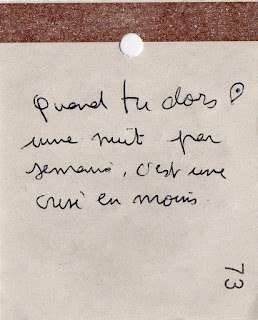 Quand tu dors
une nuit par
semaine, c'est une
crise en moins.
73